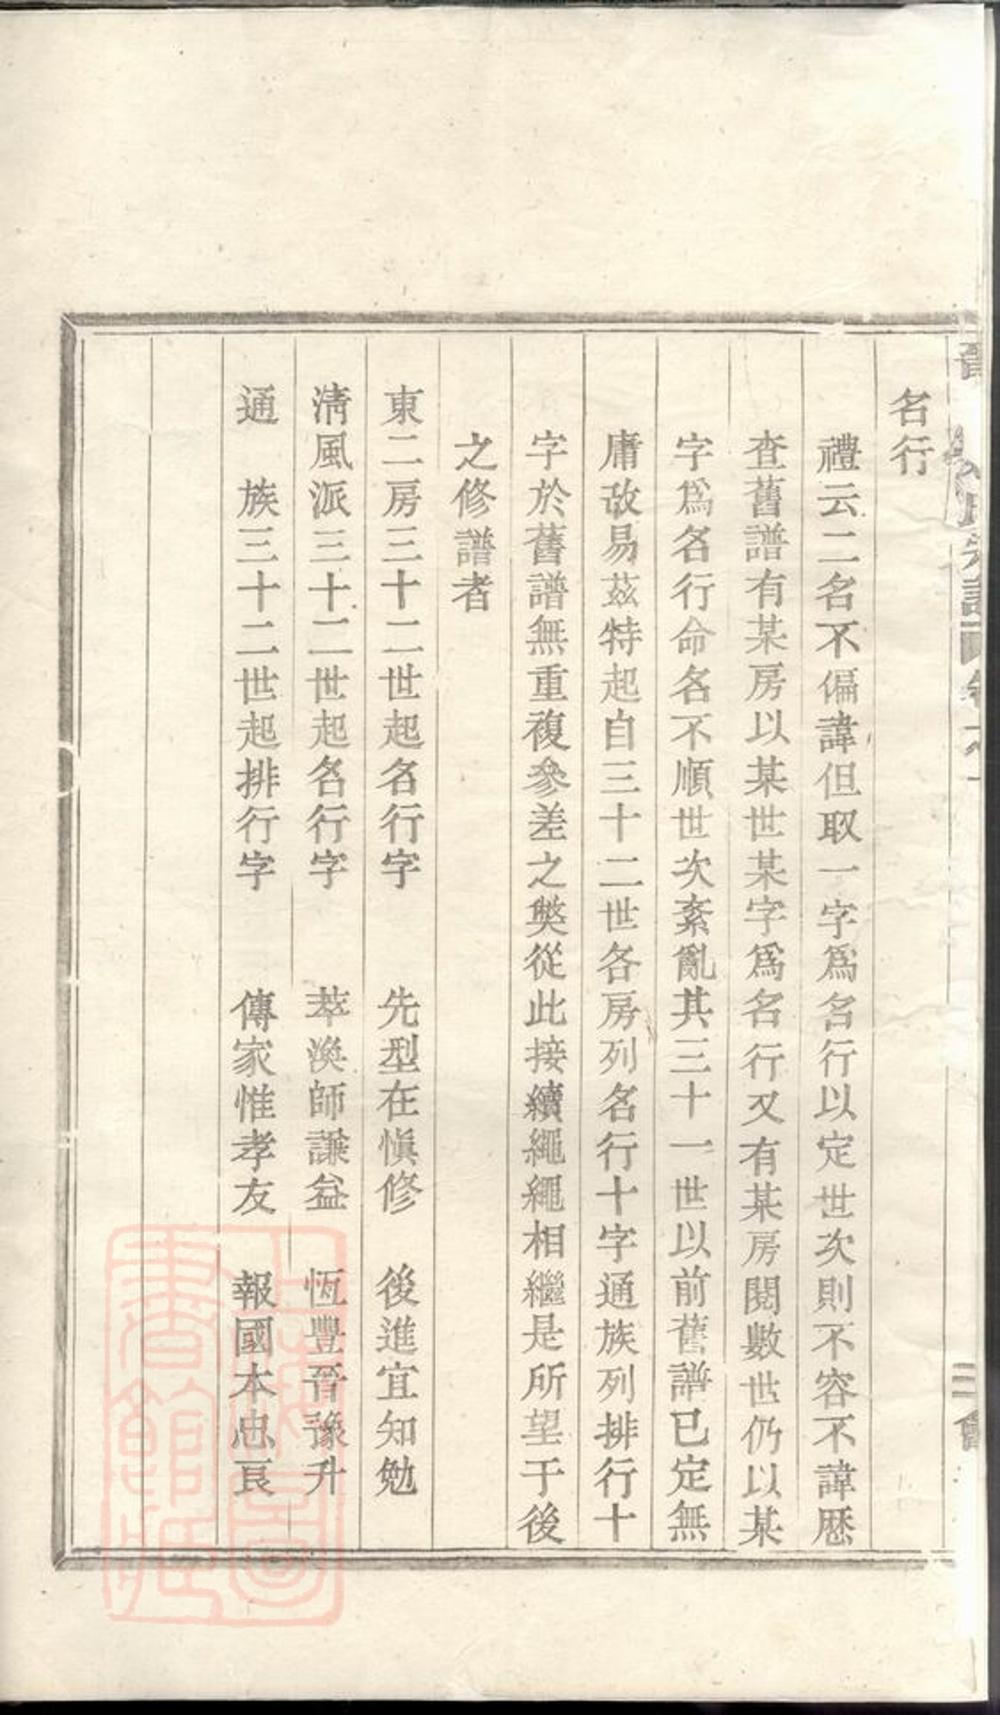 名行
禮云二名不偏諱但取一字爲名行以定世次則不容不諱歷
查舊譜有某房以某世某字爲名行又有某房閱數世仍以某
字爲名行命名不順世次紊亂其三十一世以前舊譜已定無
庸改易茲特起自三十二世各房列名行十字通族列排行十
字於舊譜無重複參差之獘從此接續繩繩相繼是所望于後
之修譜者
東二房三十二世起名行字 先型在愼修 後進宜知勉
淸風派三十二世起名行字 萃渙師謙益 恆豐晉豫升
通 族三十二世起排行字 傳家惟孝友 報國本忠良
上海圖書館藏